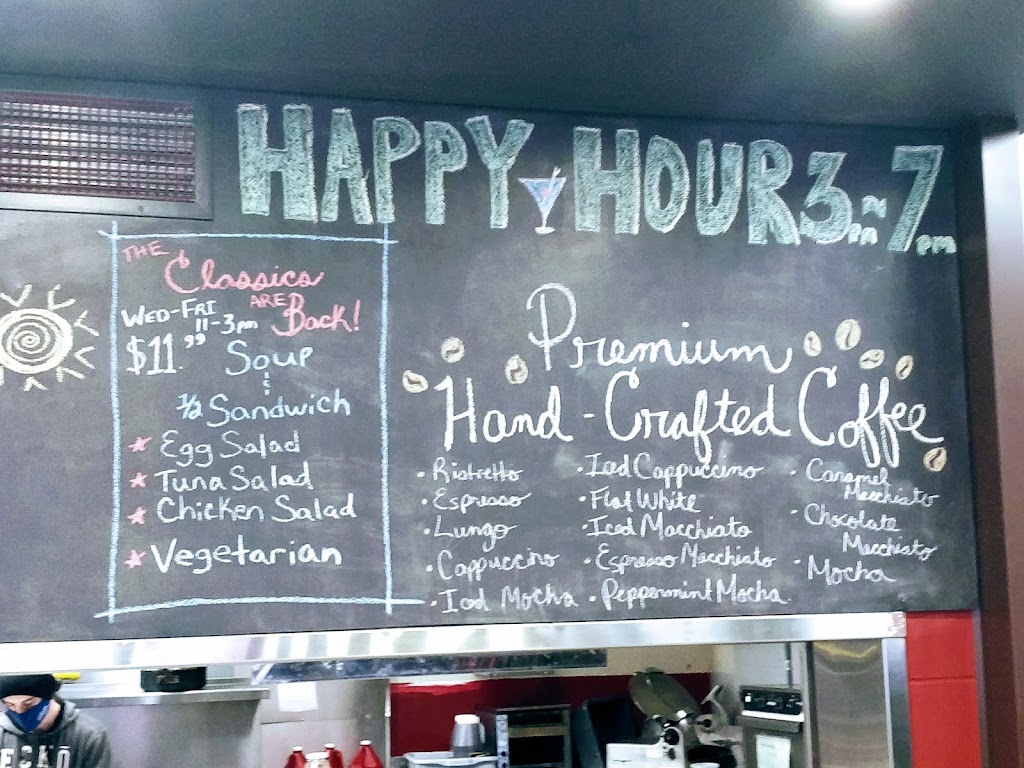 HAPPY HOUR 3PM ~ 7PM
THE
Classics
ARE
Back!
WED-FRI
11-3pm
$11.99 Soup
&
1/2 Sandwich
* Egg Salad
* Tuna Salad
* Chicken Salad
* Vegetarian
Premium
Hand-Crafted Coffee
• Ristretto
• Espresso
• Lungo
• Cappuccino
• Iced Mocha
• Iced Cappuccino
• Flat White
• Iced Macchiato
• Espresso Macchiato
• Peppermint Mocha
• Caramel
Macchiato
• Chocolate
Macchiato
• Mocha